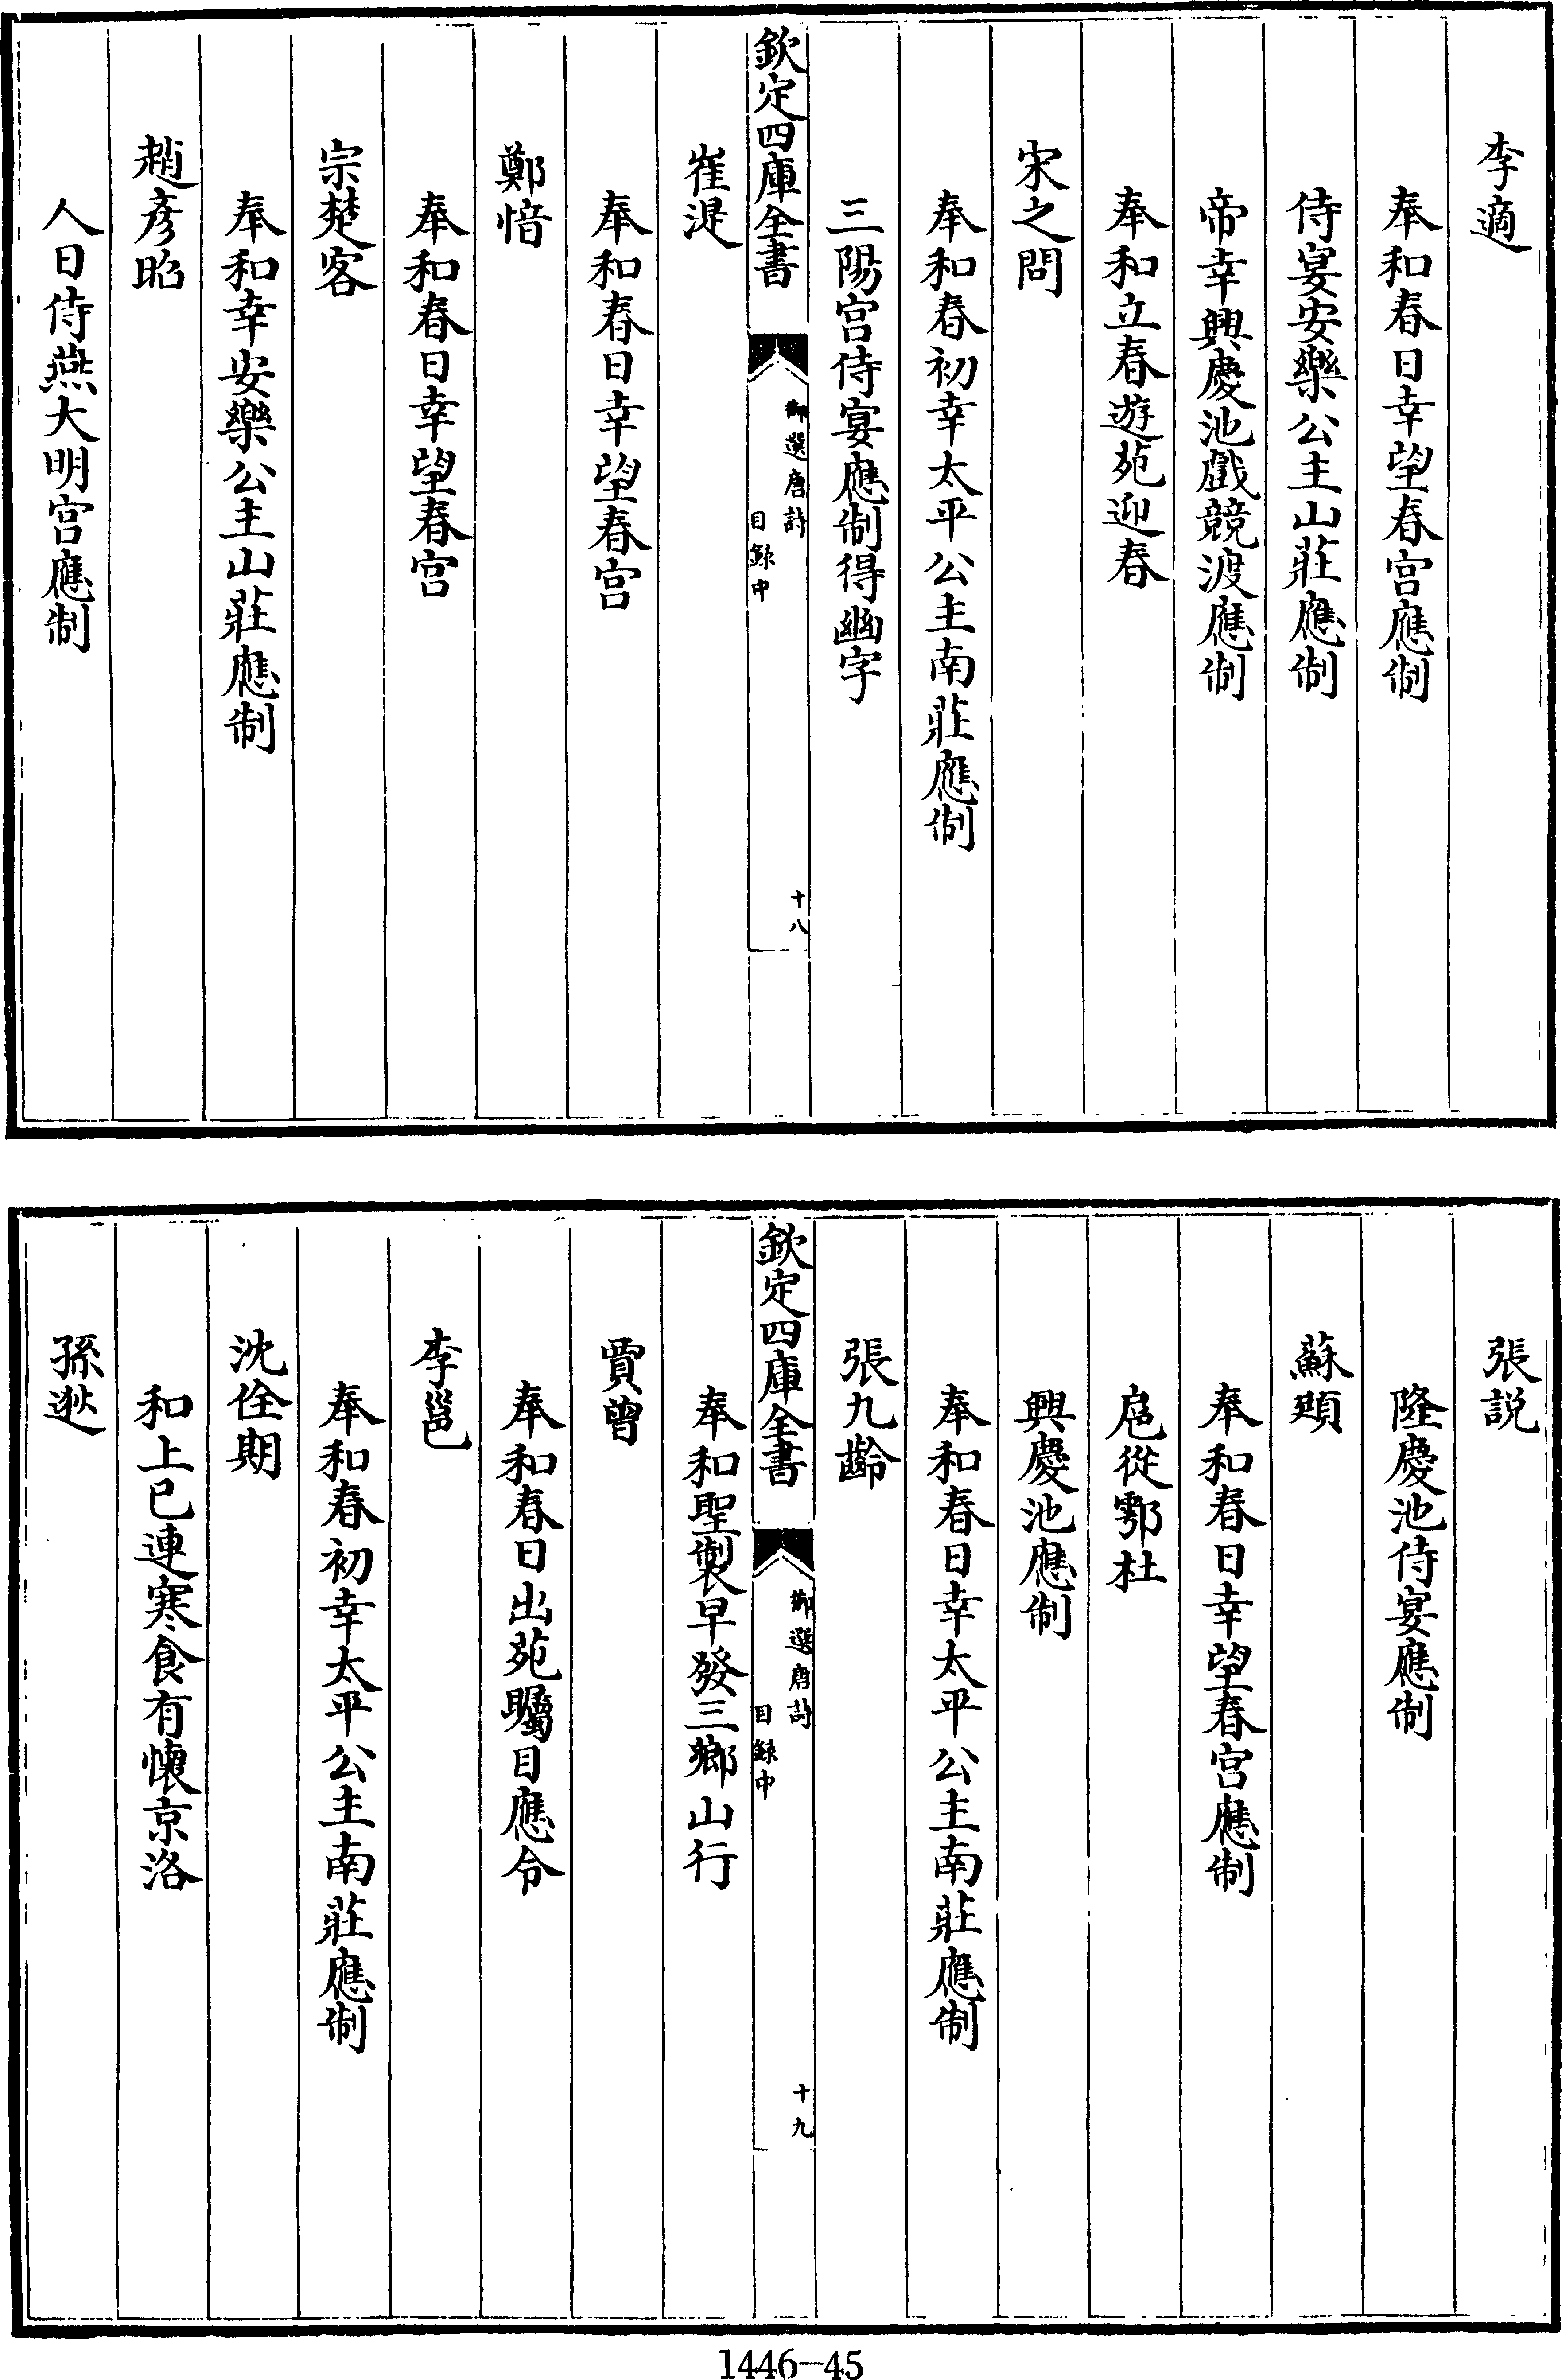 李適
奉和春日幸望春宫應制
侍宴安樂公主山莊應制
帝幸興慶池戲競渡應制
奉和立春遊苑迎春
宋之問
奉和春初幸太平公主南莊應制
三陽宫侍宴應制得幽字
欽定四庫全書
御選唐詩
目録中
十八
崔湜
奉和春日幸望春宫
鄭愔
奉和春日幸望春宫
宗楚客
奉和幸安樂公主山莊應制
趙彦昭
人日侍燕大明宫應制
張説
隆慶池侍宴應制
蘇頲
奉和春日幸望春宫應制
扈從鄠杜
興慶池應制
奉和春日幸太平公主南莊應制
張九齡
欽定四庫全書
御選唐詩
目録中
十九
奉和聖製早發三鄉山行
賈曾
奉和春日出苑矚目應令
李邕
奉和春初幸太平公主南莊應制
沈佺期
和上巳連寒食有懐京洛
孫逖
1446-45